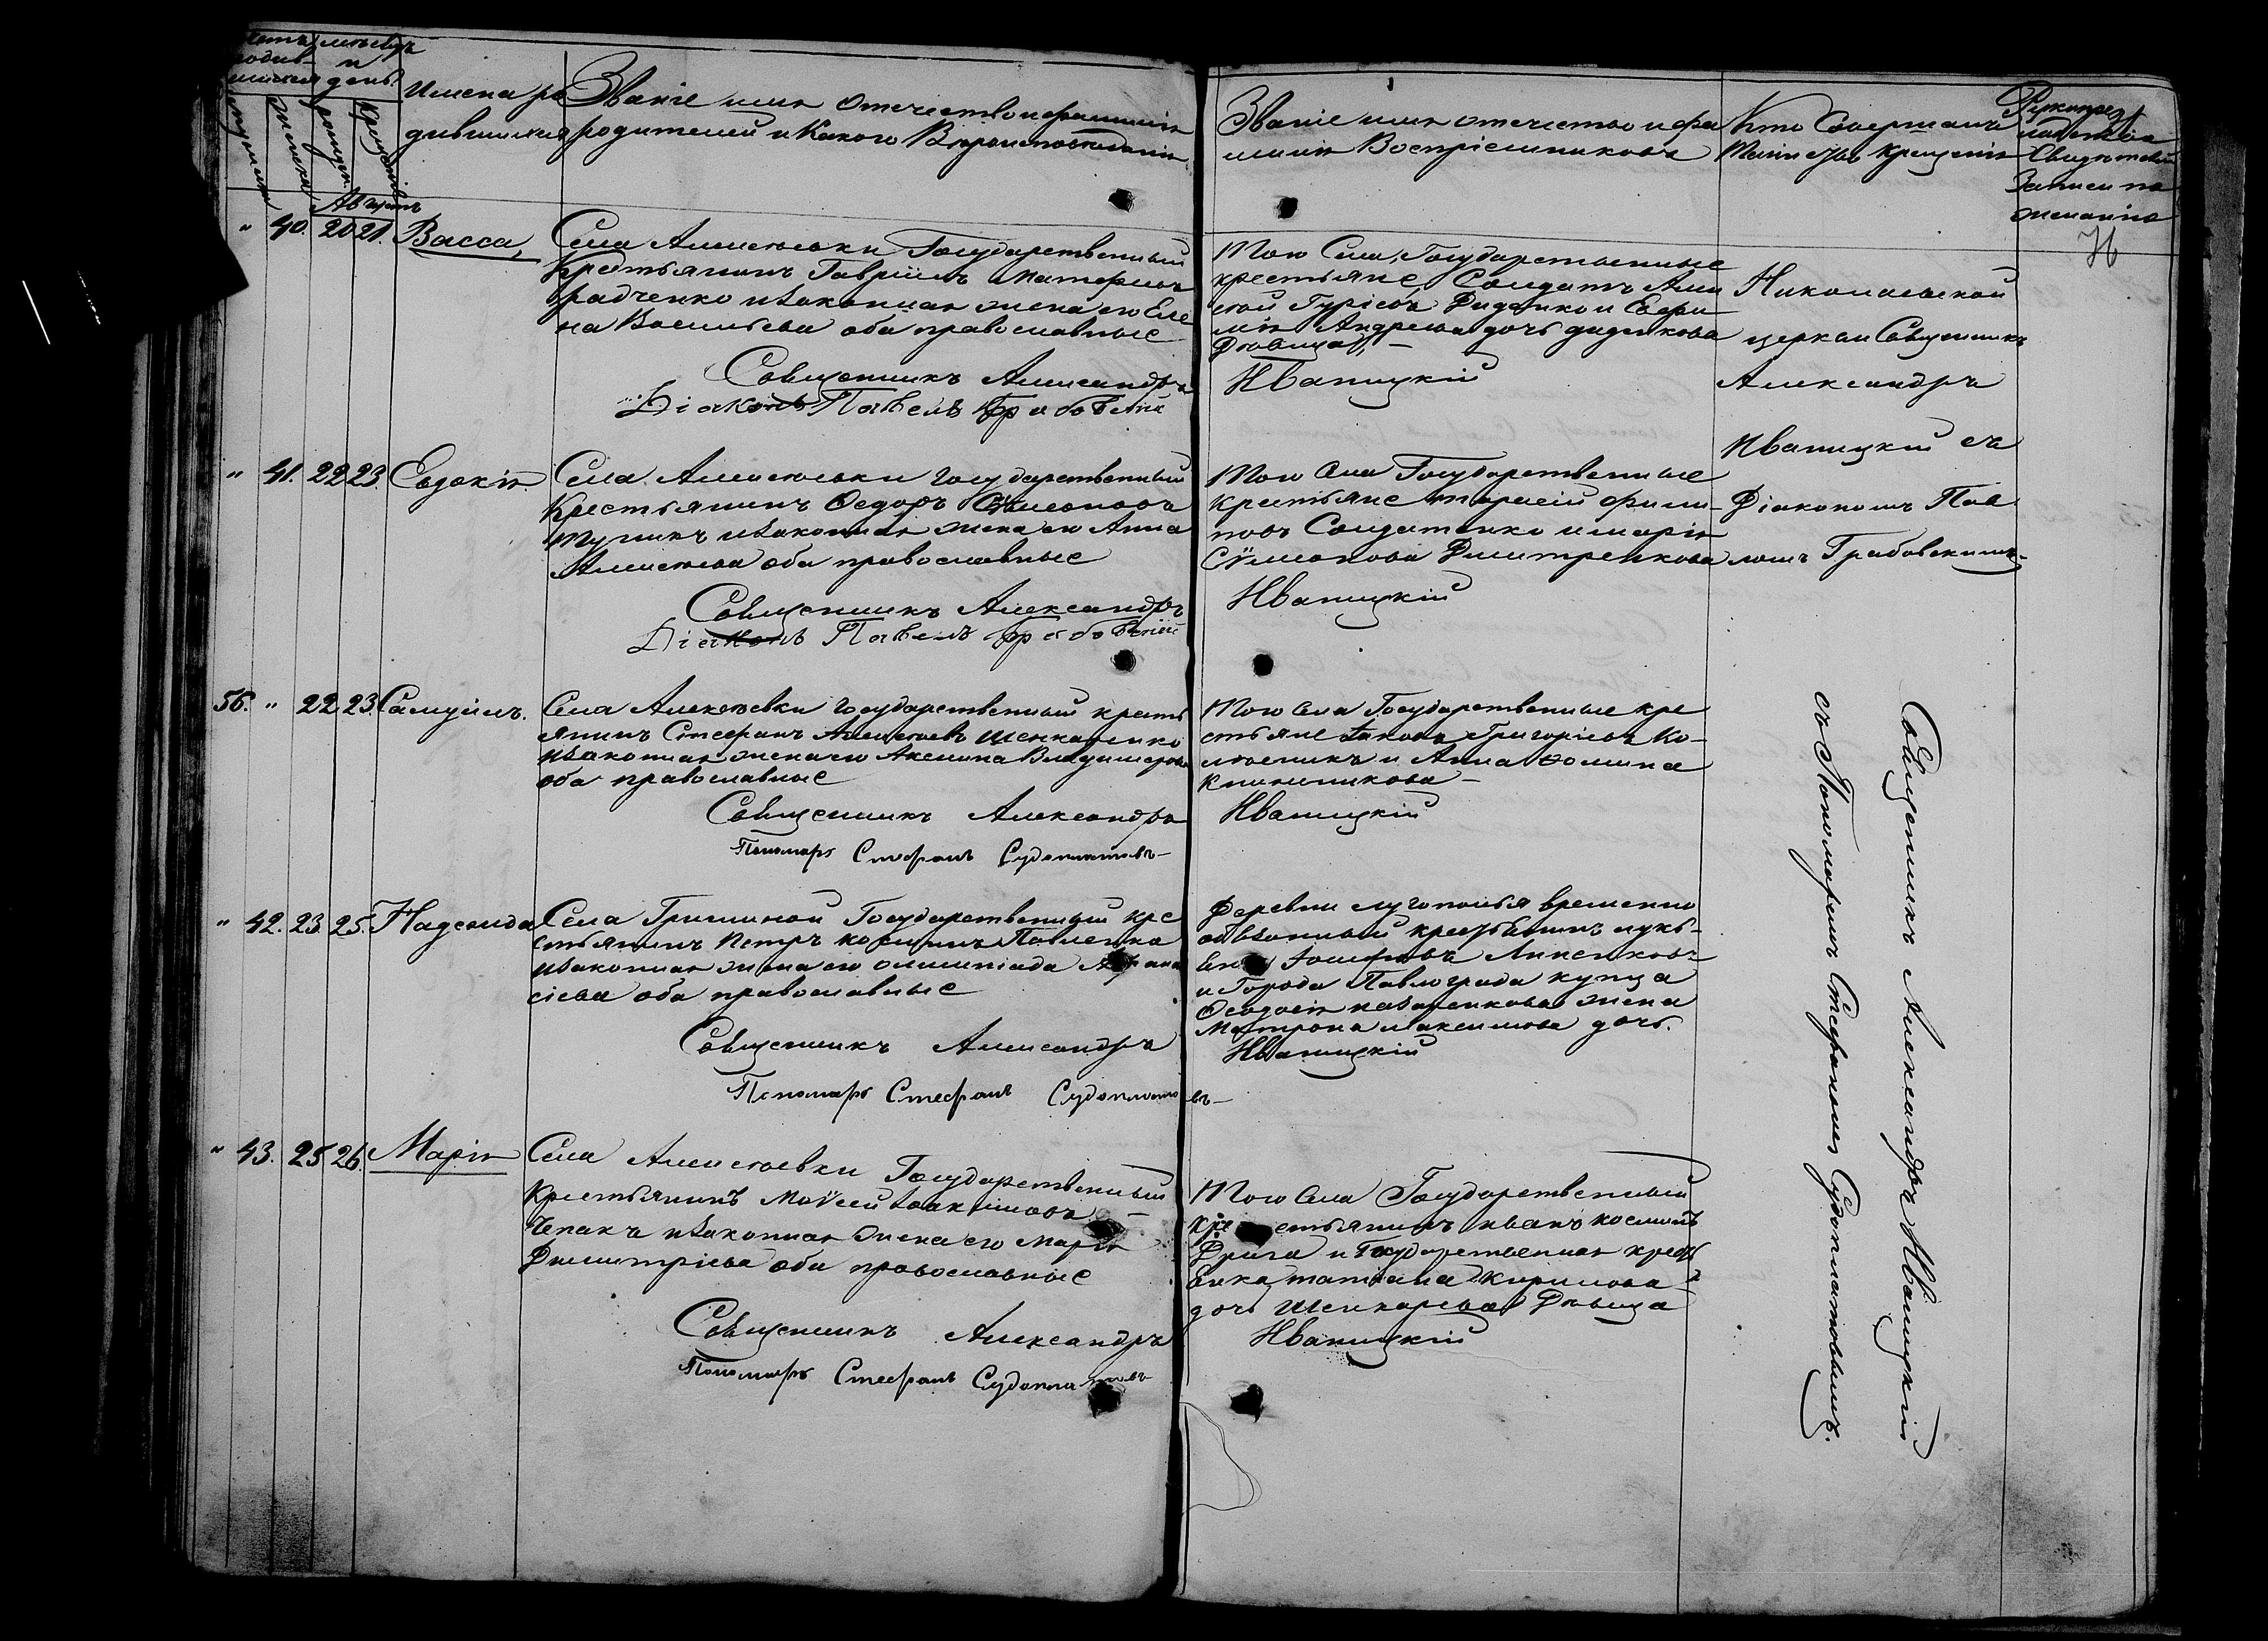 Счетъ родив-
шихся
мѣсяцъ
и
день
мужеска
женска
рожден.
крещенія
Имена ро
дившихся
Званіе имя отечество и фамилія
родителей и какого Вѣроисповѣданія
Званіе имя отечество и фа
милія Воспріемниковъ
Кто Совершалъ
Таинство крещенія
Рукопри
кладство
Свидѣтелей
Записи по
желанію
Августъ
" 40. 20 21. Васса,
Села Алексѣевки Государственный
Крестьянинъ Гавріилъ
радченко и законная жена его Еле
на Васильева оба православные
Священникъ Александръ
Діаконъ Павелъ Грабовскій
Того Села Государственные
крестьяне, Солдатъ Алек
сѣй Гуріевъ Диденко и Евфи
мія Андреева дочь диденкова
Дѣвица, —
Иваницкій
Николаевской
церкви Священникъ
Александръ
Иваницкій съ
Діакономъ Пав
ломъ Грабовскимъ.
" 41. 22 23. Евдокія.
Села Алексѣевки Государственный
Крестьянинъ Ѳедоръ Симеоновъ
и законная жена его Анна
Алексѣева оба православные
Священникъ Александръ
Діаконъ Павелъ Грабовскій
Того Села Государственные
крестьяне тарасій филип
повъ Солдатенко и марія
Сѵмеонова Дмитренкова
Иваницкій
56. " 22 23. Самуилъ.
Села Алексѣевки Государственный кресть
янинъ Стефанъ Алексѣевъ Шенкаренко
и законная жена его Акилина Владимирова
оба православные
Священникъ Александръ
Пономарь Стефанъ Судоплатовъ—
Того Села Государственные кре
стьяне Іаковъ Григоріевъ Ко-
лѣсникъ и Анна Ѳомина
—
Иваницкій
Священникъ Александръ Иваницкій
съ Пономаремъ Стефаномъ Судоплатовымъ.
" 42. 23. 25. Надежда
Села Гришиной Государственный кре
стьянинъ Петръ Павленко
и законная жена его олимпіада Афана
сіева оба православные
Священникъ Александръ
Пономарь Стефанъ Судоплатовъ—
Деревни временно
обязанный крестьянинъ лукь-
янъ
и Города Павлограда купца
Ѳеодосія назаренкова жена
Матрона максимова дочь.
Иваницкій
" 43. 25 26. Марія
Села Алексѣевки Государственный
Крестьянинъ Моѵсей Іоакимовъ —
Чепакъ и законная жена его Марія
Димитріева оба православные
Священникъ Александръ
Пономарь Стефанъ Судоплатовъ
Того Села Государственный
крестьянинъ иванъ косминъ
Дрига и Государственная кресть
янка татіана Кирилова
дочь Шенкарева Дѣвица
Иваницкій